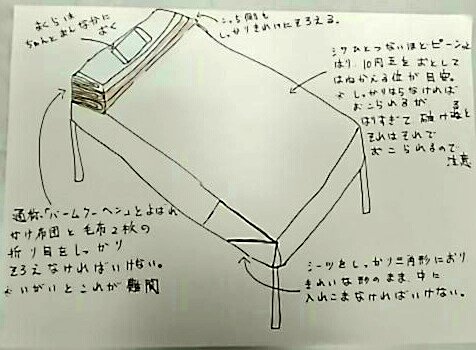 まくらは
ちゃんとまんなかに
おく
こっち側も
しっかりきれいにそろえる。
シワひとつないほどピーンと
はり、10円玉をおとして
はねかえる位が目安。
※しっかりはらなければ
おこられるが
はりすぎて破けると
それはそれで
おこられるので
注意
通称「バームクーヘン」とよばれ
かけ布団と毛布2枚の
折り目をしっかり
そろえなければいけない。
※いがいとこれが難関
シーツをしっかり三角形におり
きれいな形のまま中に
入れこまなければいけない。